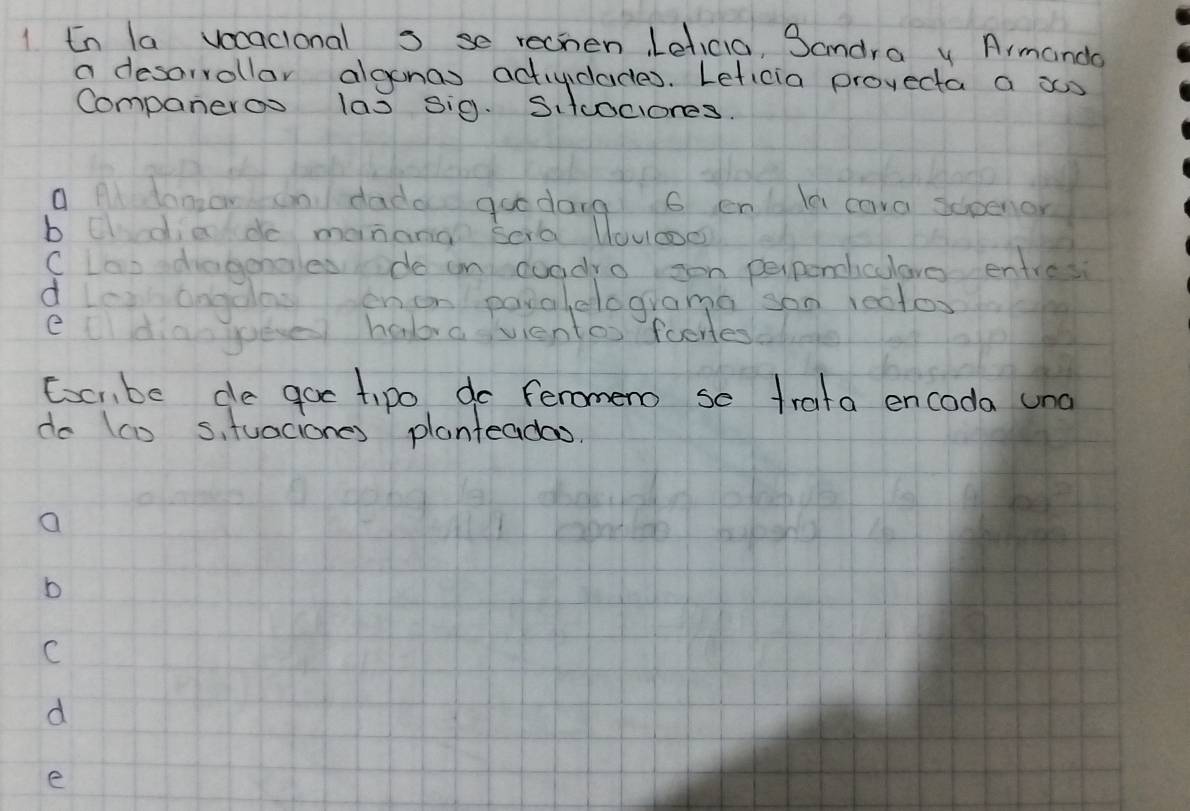 1 En la vocacional 5 se reúnen Leticia, Sandra y Armando
a desarrollar algunas actividades. Leticia proyecta a sus
Compañeros las sig. Situaciones.
a Al lanzar un dado quedara 6 en la cara superior
b El dia de mañana sera lluvioso
c Las diagonales de un cuadro son perpendiculares entre si
d Los angulos en un paralelograma son rectos
e El dia jueves habra vientos fuertes
Escribe de que tipo de fenomeno se trata en cada una
de las situaciones planteadas.
a
b
c
d
e